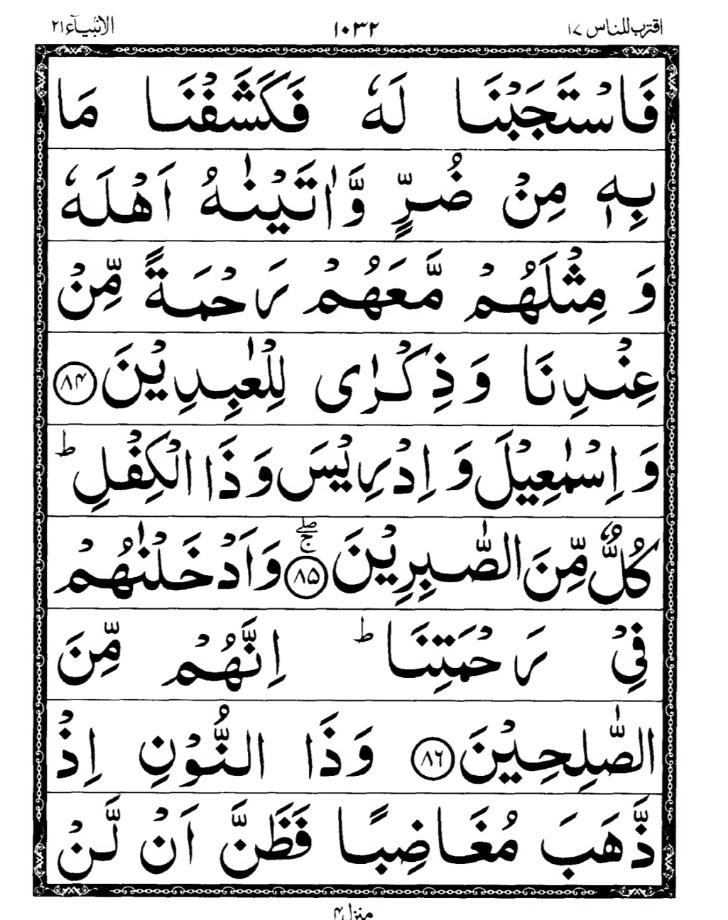 اقترب للناس ١٧ ١٠٣٢ الانبیآء ٢١
فَاسْتَجَبْنَا لَهٗ فَكَشَفْنَا مَا
بِهٖ مِنْ ضُرٍّ وَّاٰتَيْنٰهُ اَهْلَهٗ
وَ مِثْلَهُمْ مَّعَهُمْ رَحْمَةً مِّنْ
عِنْدِنَا وَ ذِكْرٰى لِلْعٰبِدِيْنَ ﴿۸۴﴾
وَ اِسْمٰعِيْلَ وَ اِدْرِيْسَ وَ ذَا الْكِفْلِ ؕ
كُلٌّ مِّنَ الصّٰبِرِيْنَ ﴿۸۵﴾ ۚۖ وَ اَدْخَلْنٰهُمْ
فِيْ رَحْمَتِنَا ؕ اِنَّهُمْ مِّنَ
الصّٰلِحِيْنَ ﴿۸۶﴾ وَ ذَا النُّوْنِ اِذْ
ذَّهَبَ مُغَاضِبًا فَظَنَّ اَنْ لَّنْ
منزل ۴